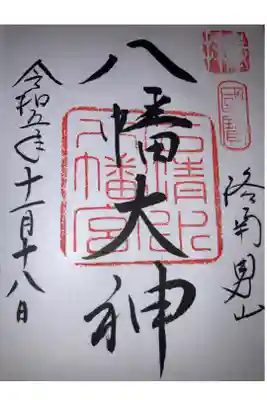 洛南男山
八幡大神
石清水
八幡宮
令和五年十一月十八日